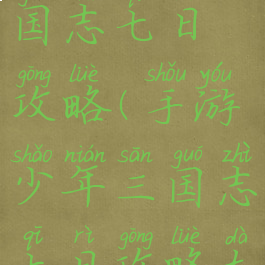 国志七日
gōng lüè shǒu yóu
攻略(手游
shǎo nián sān guó zhì
少年三国志
qī rì gōng lüè dà
七日攻略大